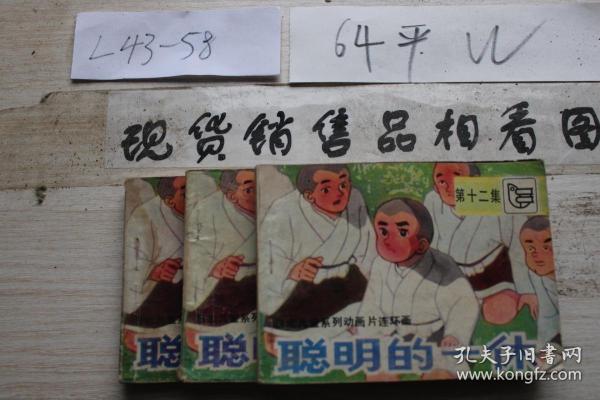 L43-58
64平 W
现货销售品相看图
第十二集
系列动画片连环画
聪明的一休
聪明
聪
孔夫子旧书网
www.kongfz.com